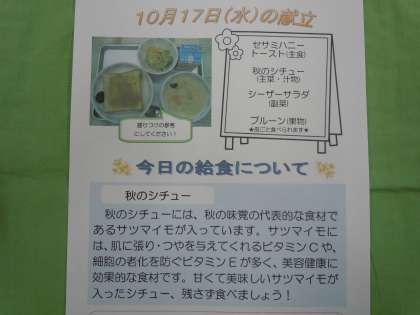 10月17日(水)の献立
セサミハニー
トースト(主食)
秋のシチュー
(主菜・汁物)
シーザーサラダ
(副菜)
プルーン(果物)
★皮ごと食べられます★
盛りつけの参考
にしてください！
今日の給食について
秋のシチュー
秋のシチューには、秋の味覚の代表的な食材で
あるサツマイモが入っています。サツマイモに
は、肌に張り・つやを与えてくれるビタミンＣや、
細胞の老化を防ぐビタミンＥが多く、美容健康に
効果的な食材です。甘くて美味しいサツマイモが
入ったシチュー、残さず食べましょう！